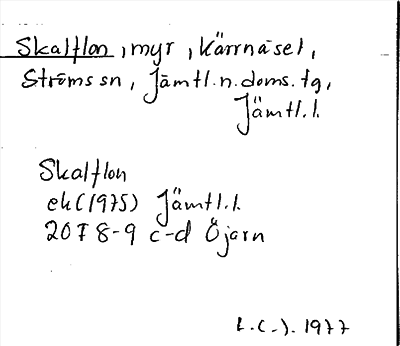 Skalflon, myr, Kärrnäset,
Ströms sn, Jämtl.n.doms.tg,
Jämtl.l.
Skalflon
ek (1975) Jämtl.l.
20F 8-9 c-d Öjarn
1977